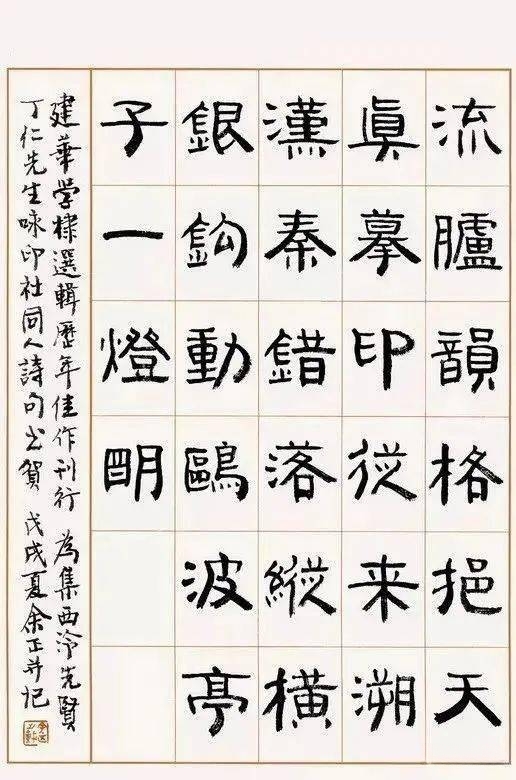 流臚韻格挹天
真摹印從来溯
漢秦錯落縱橫
銀鈎動鷗波亭
子一燈明
建華学棣選輯歷年佳作刊行 為集西泠先賢
丁仁先生咏印社同人詩句以賀 戊戌夏余正并记